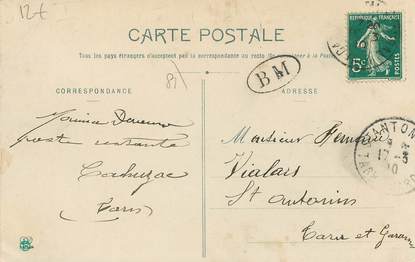 12€
CARTE POSTALE
Tous les pays étrangers n'acceptent pas la correspondance au recto
RÉPUBLIQUE FRANÇAISE
5c
81
BM
CORRESPONDANCE
ADRESSE
poste restante
Cahuzac
(Tarn)
Monsieur
Vialars
St Antonin
Tarn et Garonne